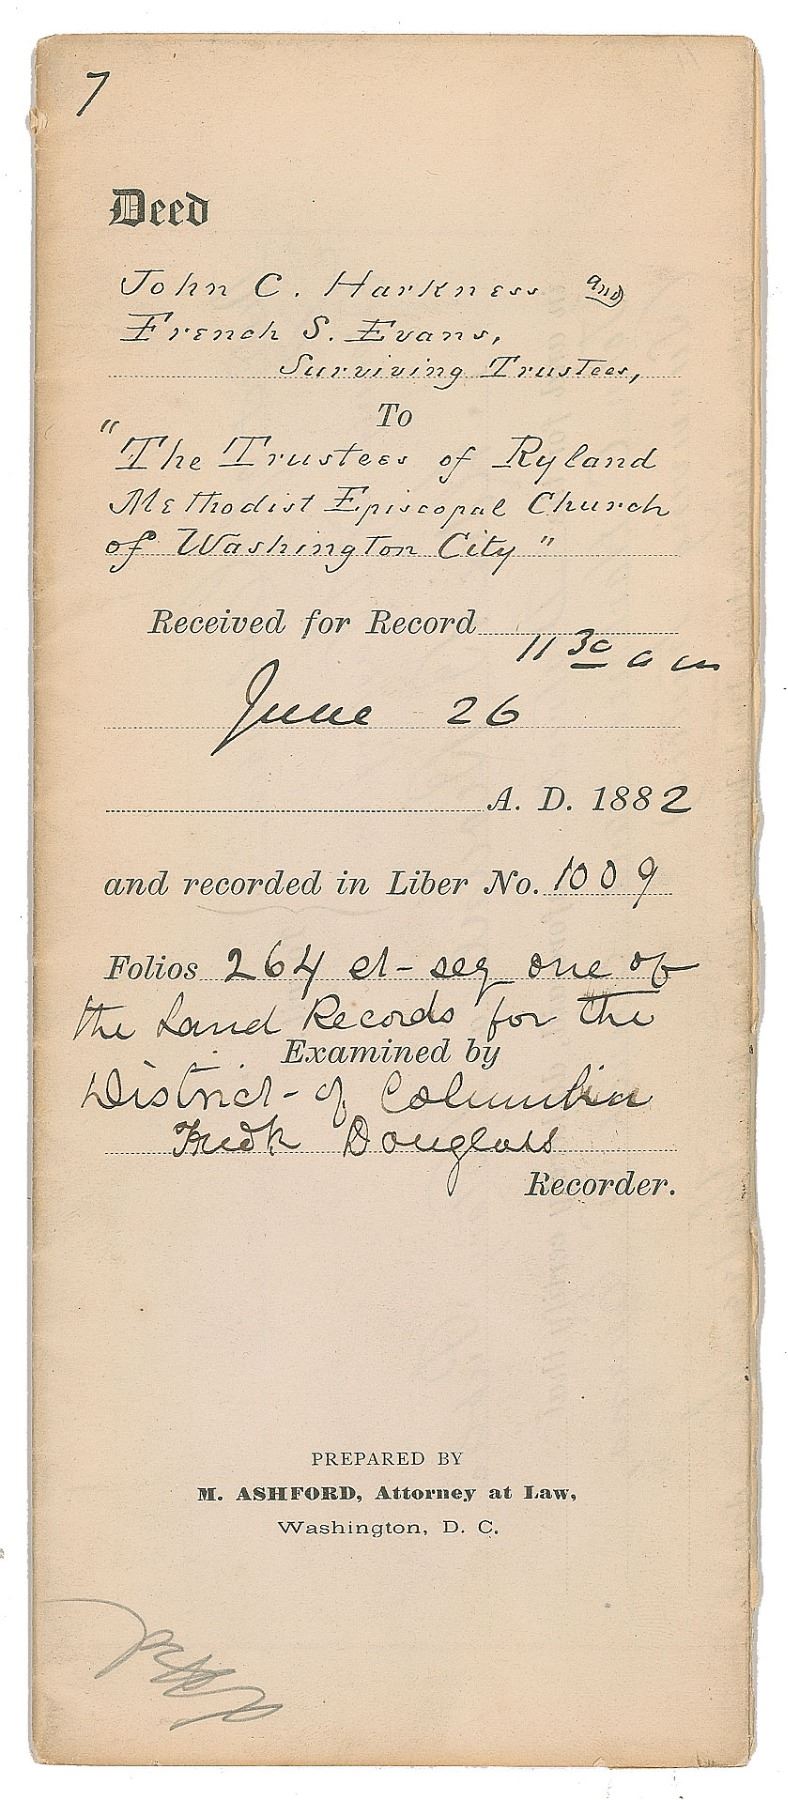 7
Deed
John C. Harkness and
French S. Evans,
Surviving Trustees,
To
"The Trustees of Ryland
Methodist Episcopal Church
of Washington City"
Received for Record
11 30 a m
June 26
A. D. 1882
and recorded in Liber No. 1009
Folios 264 et-seq one of
the Land Records for the
Examined by
District of Columbia
Fredk Douglass
Recorder.
PREPARED BY
M. ASHFORD, Attorney at Law,
Washington, D. C.